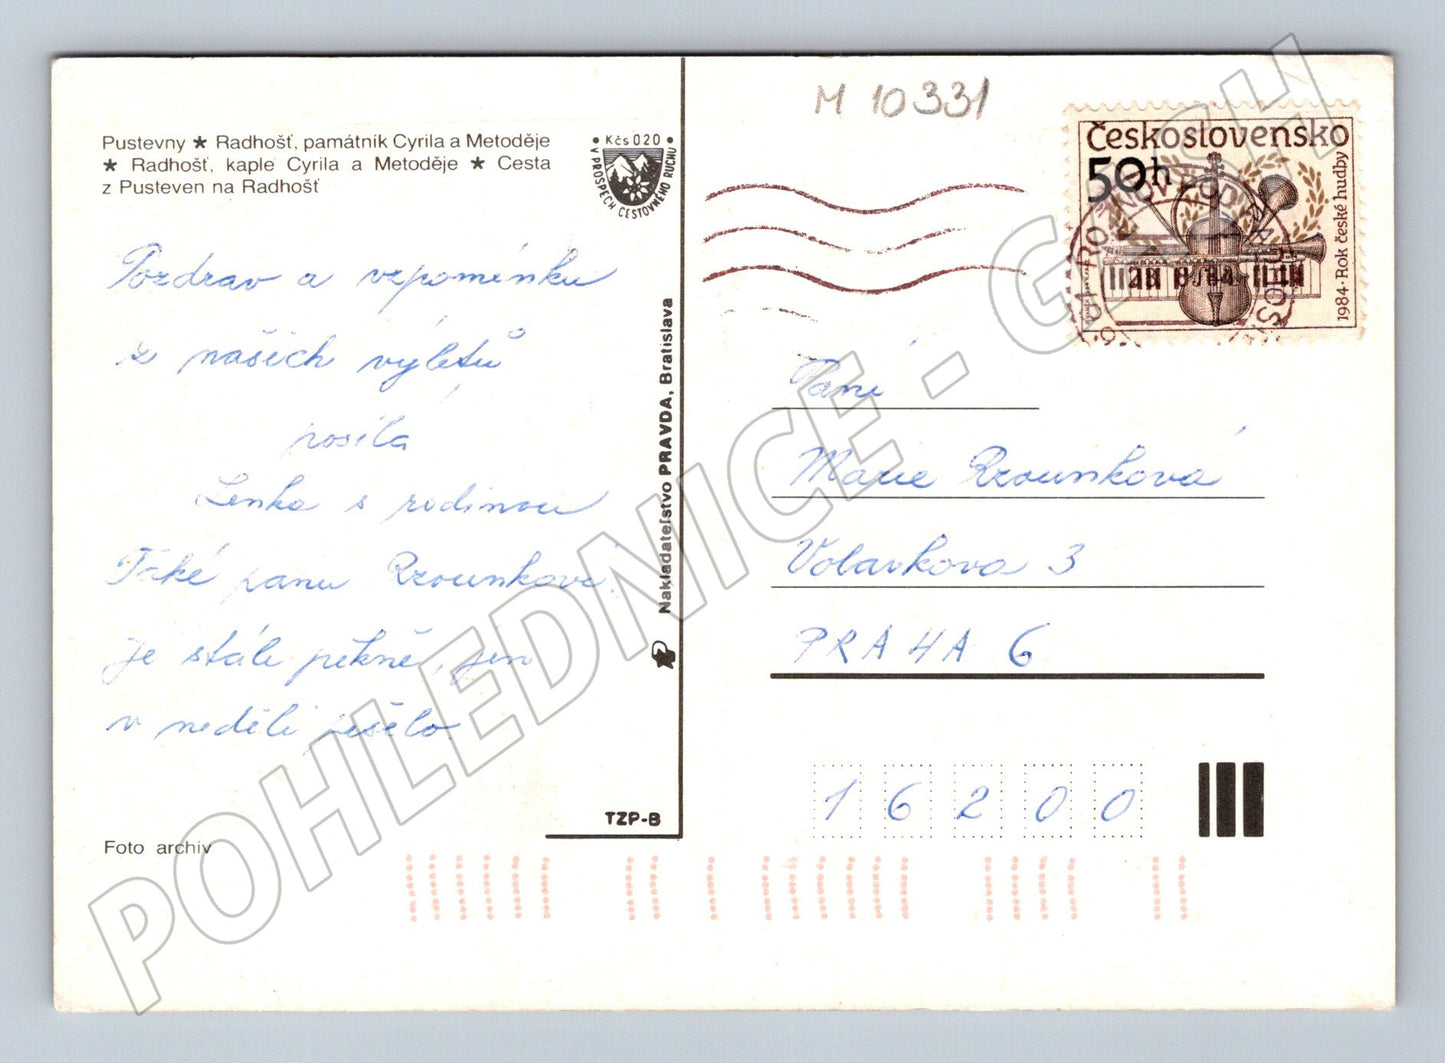 M 10331
Pustevny ★ Radhošť, památník Cyrila a Metoděje
★ Radhošť, kaple Cyrila a Metoděje ★ Cesta
z Pusteven na Radhošť
• Kčs 020 •
V PROSPECH CESTOVNÉHO RUCHU
Československo
50h
1984 · Rok české hudby
Pozdrav a vzpomínku
z našich výletů
posílá
Lenka s rodinou
Také panu Rzounkovi
Je stále pěkně, jen
v neděli pršelo.
Nakladateľstvo PRAVDA, Bratislava
TZP-B
Foto archív
Paní
Marie Rzounková
Volavkova 3
PRAHA 6
16200
POHLEDNICE - GASH